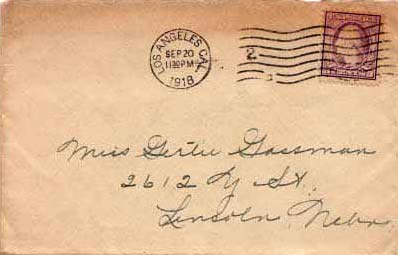 LOS ANGELES CAL.
SEP 20
11 30 PM
1918
2
Miss Gertie Gassman
2612 Y St.
Lincoln, Nebr.